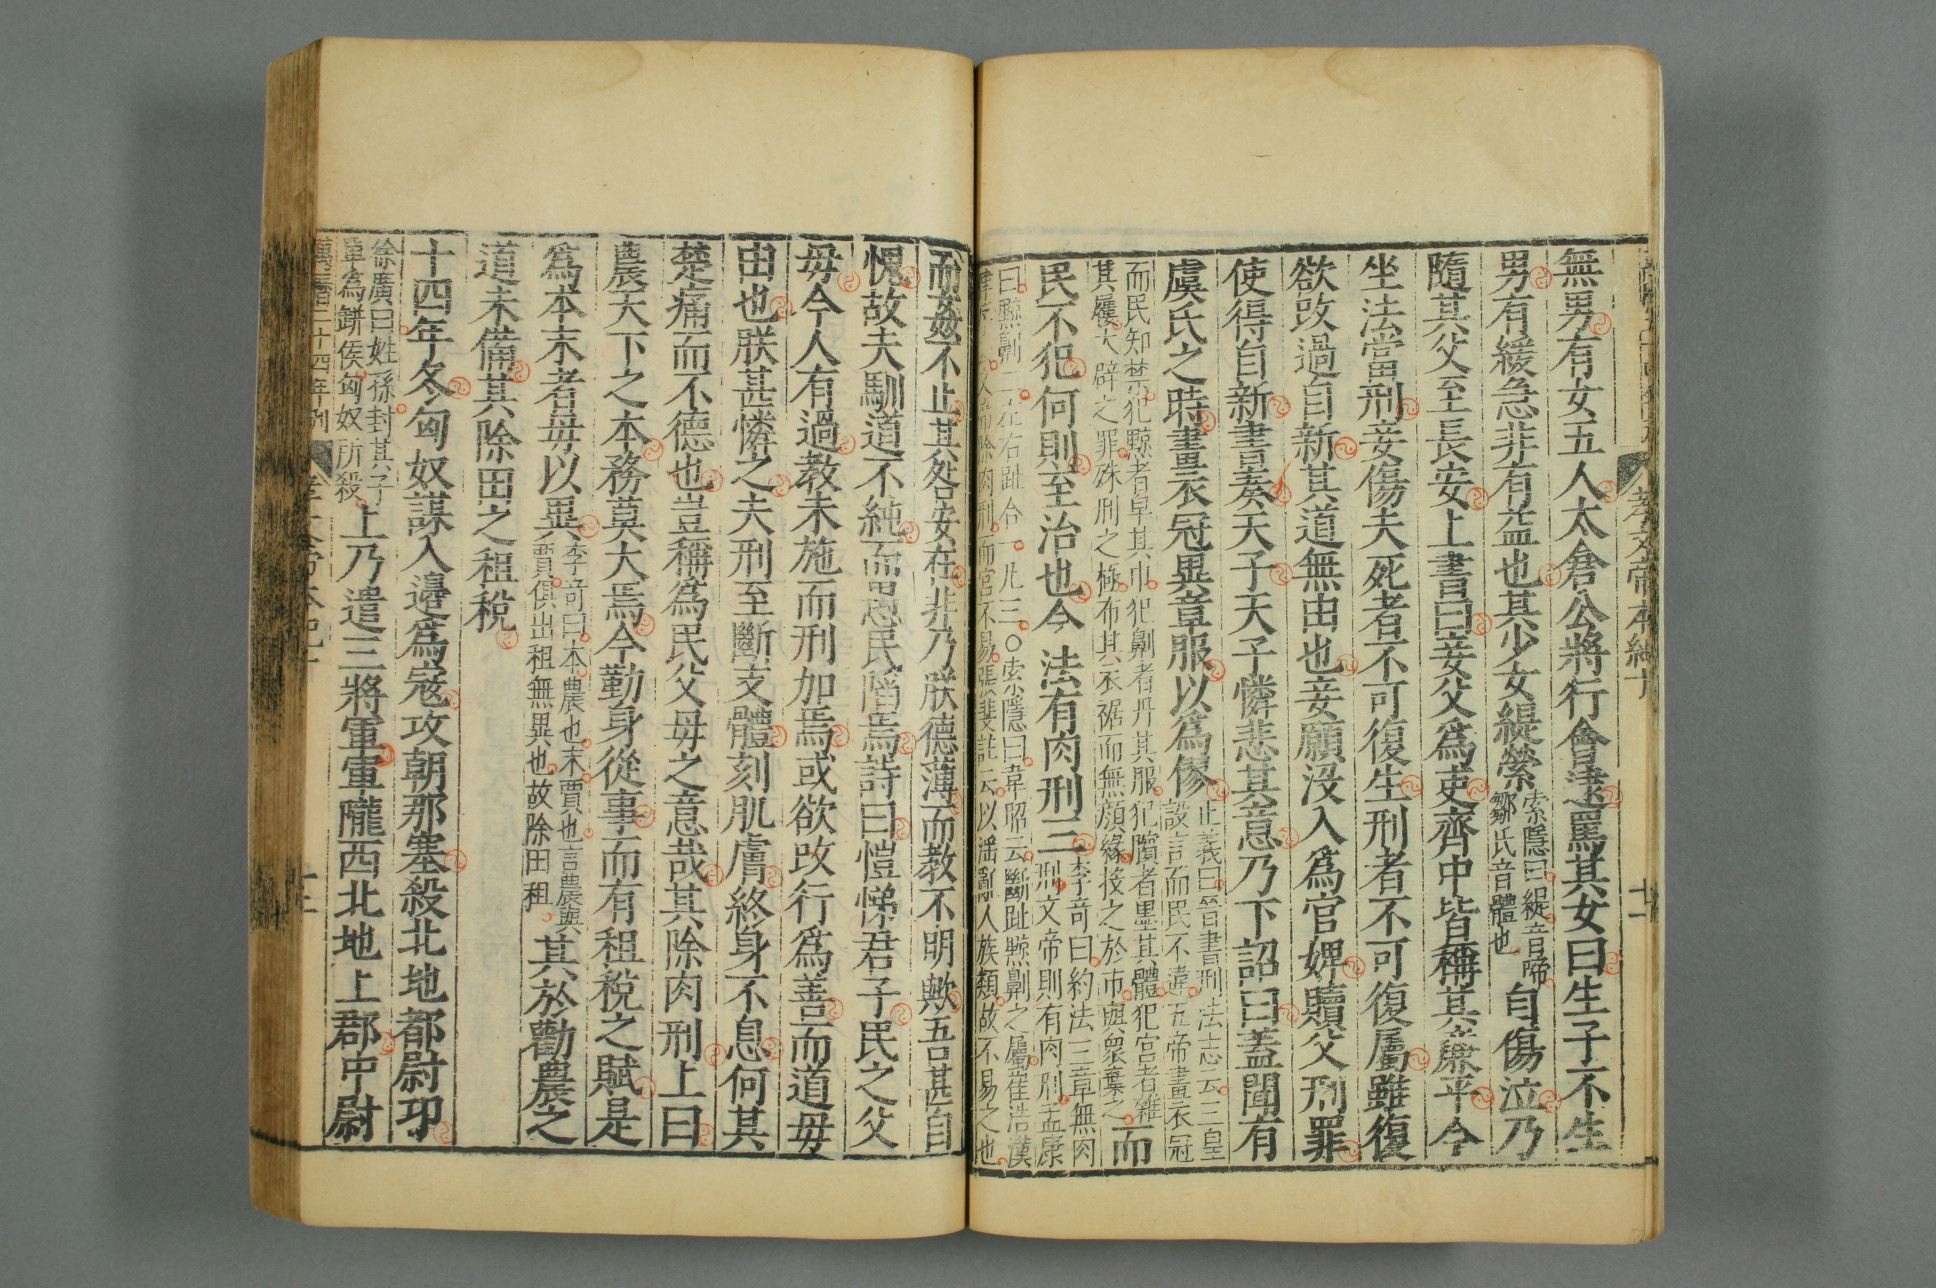 孝文帝本紀十
無男有女五人太倉公將行會逮罵其女曰生子不生
男有緩急非有益也其少女緹縈索隱曰緹音啼鄒氏音體也自傷泣乃
隨其父至長安上書曰妾父爲吏齊中皆稱其廉平今
坐法當刑妾傷夫死者不可復生刑者不可復屬雖復
欲改過自新其道無由也妾願没入爲官婢贖父刑罪
使得自新書奏天子天子憐悲其意乃下詔曰蓋聞有
虞氏之時畫衣冠異章服以爲僇正義曰晉書刑法志云三皇設言而民不違五帝畫衣冠
而民知禁犯黥者皁其巾犯劓者丹其服犯臏者墨其體犯宮者雜其屨大辟之罪殊刑之極布其衣裾而無顔緣投之於市與衆棄之而
民不犯何則至治也今法有肉刑三李奇曰約法三章無肉刑文帝則有肉刑孟康
曰黥劓二左右趾合一凡三〇索隱曰韋昭云斷趾黥劓之屬崔浩漢律序云文帝除肉刑而宮不易張斐註云以淫亂人族類故不易之也
而姦不止其咎安在非乃朕德薄而教不明歟吾甚自
愧故夫馴道不純而愚民陷焉詩曰愷悌君子民之父
毋今人有過教未施而刑加焉或欲改行爲善而道毋
由也朕甚憐之夫刑至斷支體刻肌膚終身不息何其
楚痛而不德也豈稱爲民父毋之意哉其除肉刑上曰
農天下之本務莫大焉今勤身從事而有租稅之賦是
爲本末者毋以異李竒曰本農也末賈也言農與賈俱出租無異也故除田租其於勸農之
道未備其除田之租稅
十四年冬匈奴謀入邊爲寇攻朝那塞殺北地都尉卭
徐廣曰姓孫封其子單爲缾侯匈奴所殺上乃遣三將軍軍隴西北地上郡中尉
萬曆二十四年刋